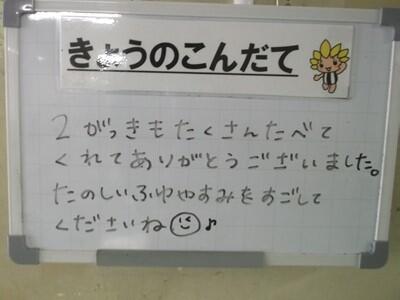 きょうのこんだて
2がっきもたくさんたべて
くれてありがとうございました。
たのしいふゆやすみをすごして
くださいね♪